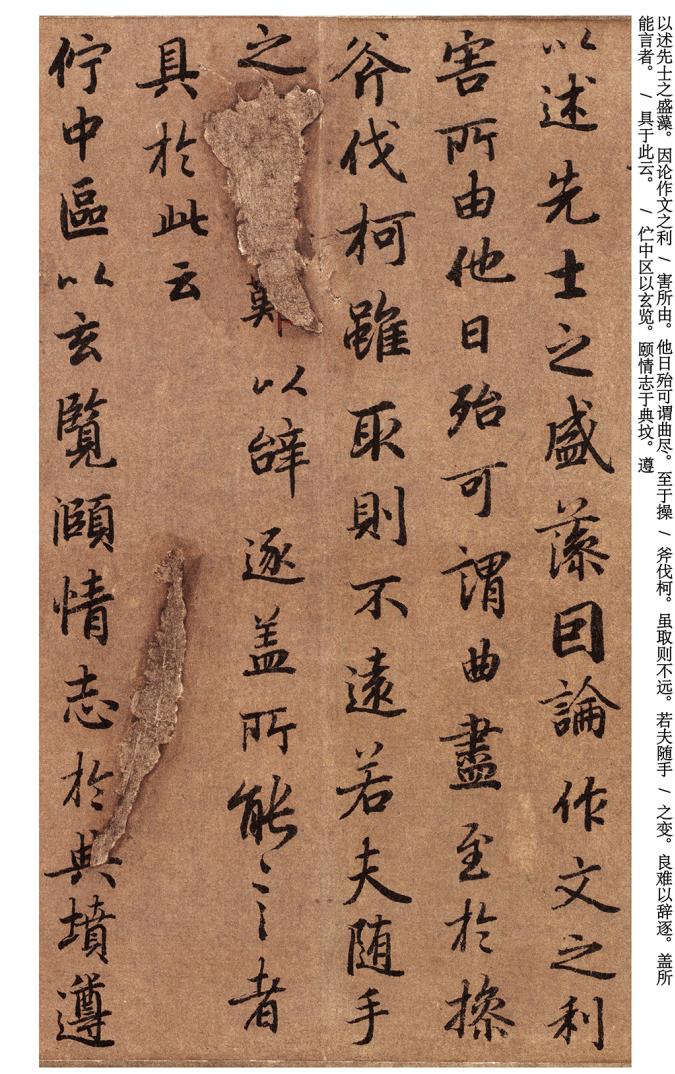 以述先士之盛藻。因论作文之利 / 害所由。他日殆可谓曲尽。至于操 / 斧伐柯。虽取则不远。若夫随手 / 之变。良难以辞逐。盖所
能言者。 / 具于此云。 / 伫中区以玄览。颐情志于典坟。遵
以述先士之盛藻因論作文之利
害所由他日殆可謂曲盡至於操
斧伐柯雖取則不遠若夫随手
之以辝逐盖所能言者
具於此云
佇中區以玄覽頤情志於典墳遵